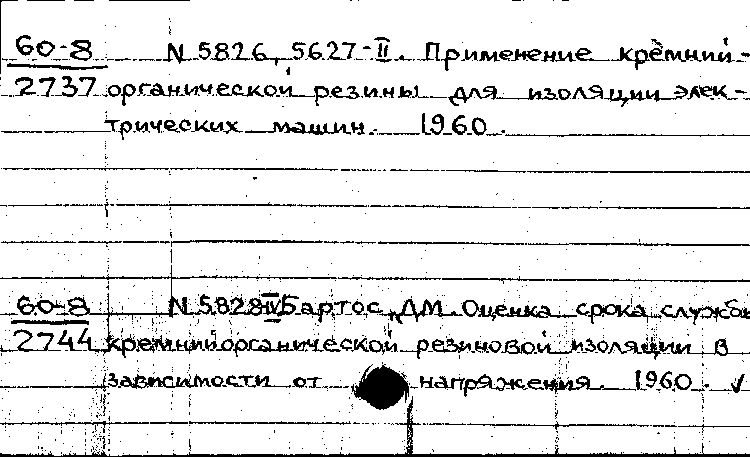 60-8 N 5826, 5627-II. Применение кремний-
2737 органической резины для изоляции элек-
трических машин. 1960.
60-8 N 5828-IV Бартос, ДМ. Оценка срока службы
2744 кремнийорганической резиновой изоляции в
зависимости от напряжения. 1960. ✓